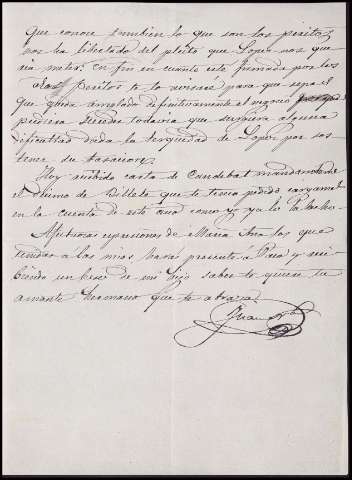 Que conoce tambien lo que son los peritos
nos ha libertado del pleito que Lopez nos que
ria meter. En fin en cuanto este firmada por los
dos peritos te lo avisaré para que sepas el
que queda arreglado definitivamente el negocio porque
pudiera suceder todavia que surgiera alguna
dificultad dada la terquedad de Lopez por sos
tener su tasacion.
Hoy recibido carta de Candebat mandandome
el decimo de billete que te tenia pedido cargame
en la cuenta de este año como yo ya lo
Mil tiernas espresiones de Maria Ana las que
tendras a las mias haras presente a Paca y reci
biendo un beso de mi hijo sabes te quiere tu
amante hermano que te abraza
Juan